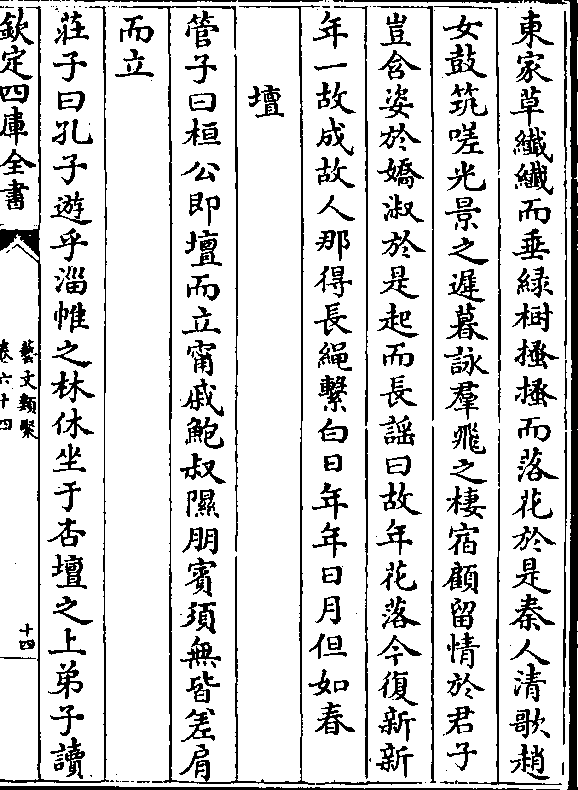 東家草纖纖而垂緑樹搔搔而落花於是秦人清歌趙
女鼓筑嗟光景之遲暮詠羣飛之棲宿顧留情於君子
豈含姿於嬌淑於是起而長謡曰故年花落今復新新
年一故成故人那得長䋲繫白日年年日月但如春
壇
管子曰桓公即壇而立甯戚鮑叔隰朋賓須無皆差肩
而立
莊子曰孔子遊乎淄帷之林休坐于杏壇之上弟子讀
欽定四庫全書
藝文類聚
卷六十四
十四